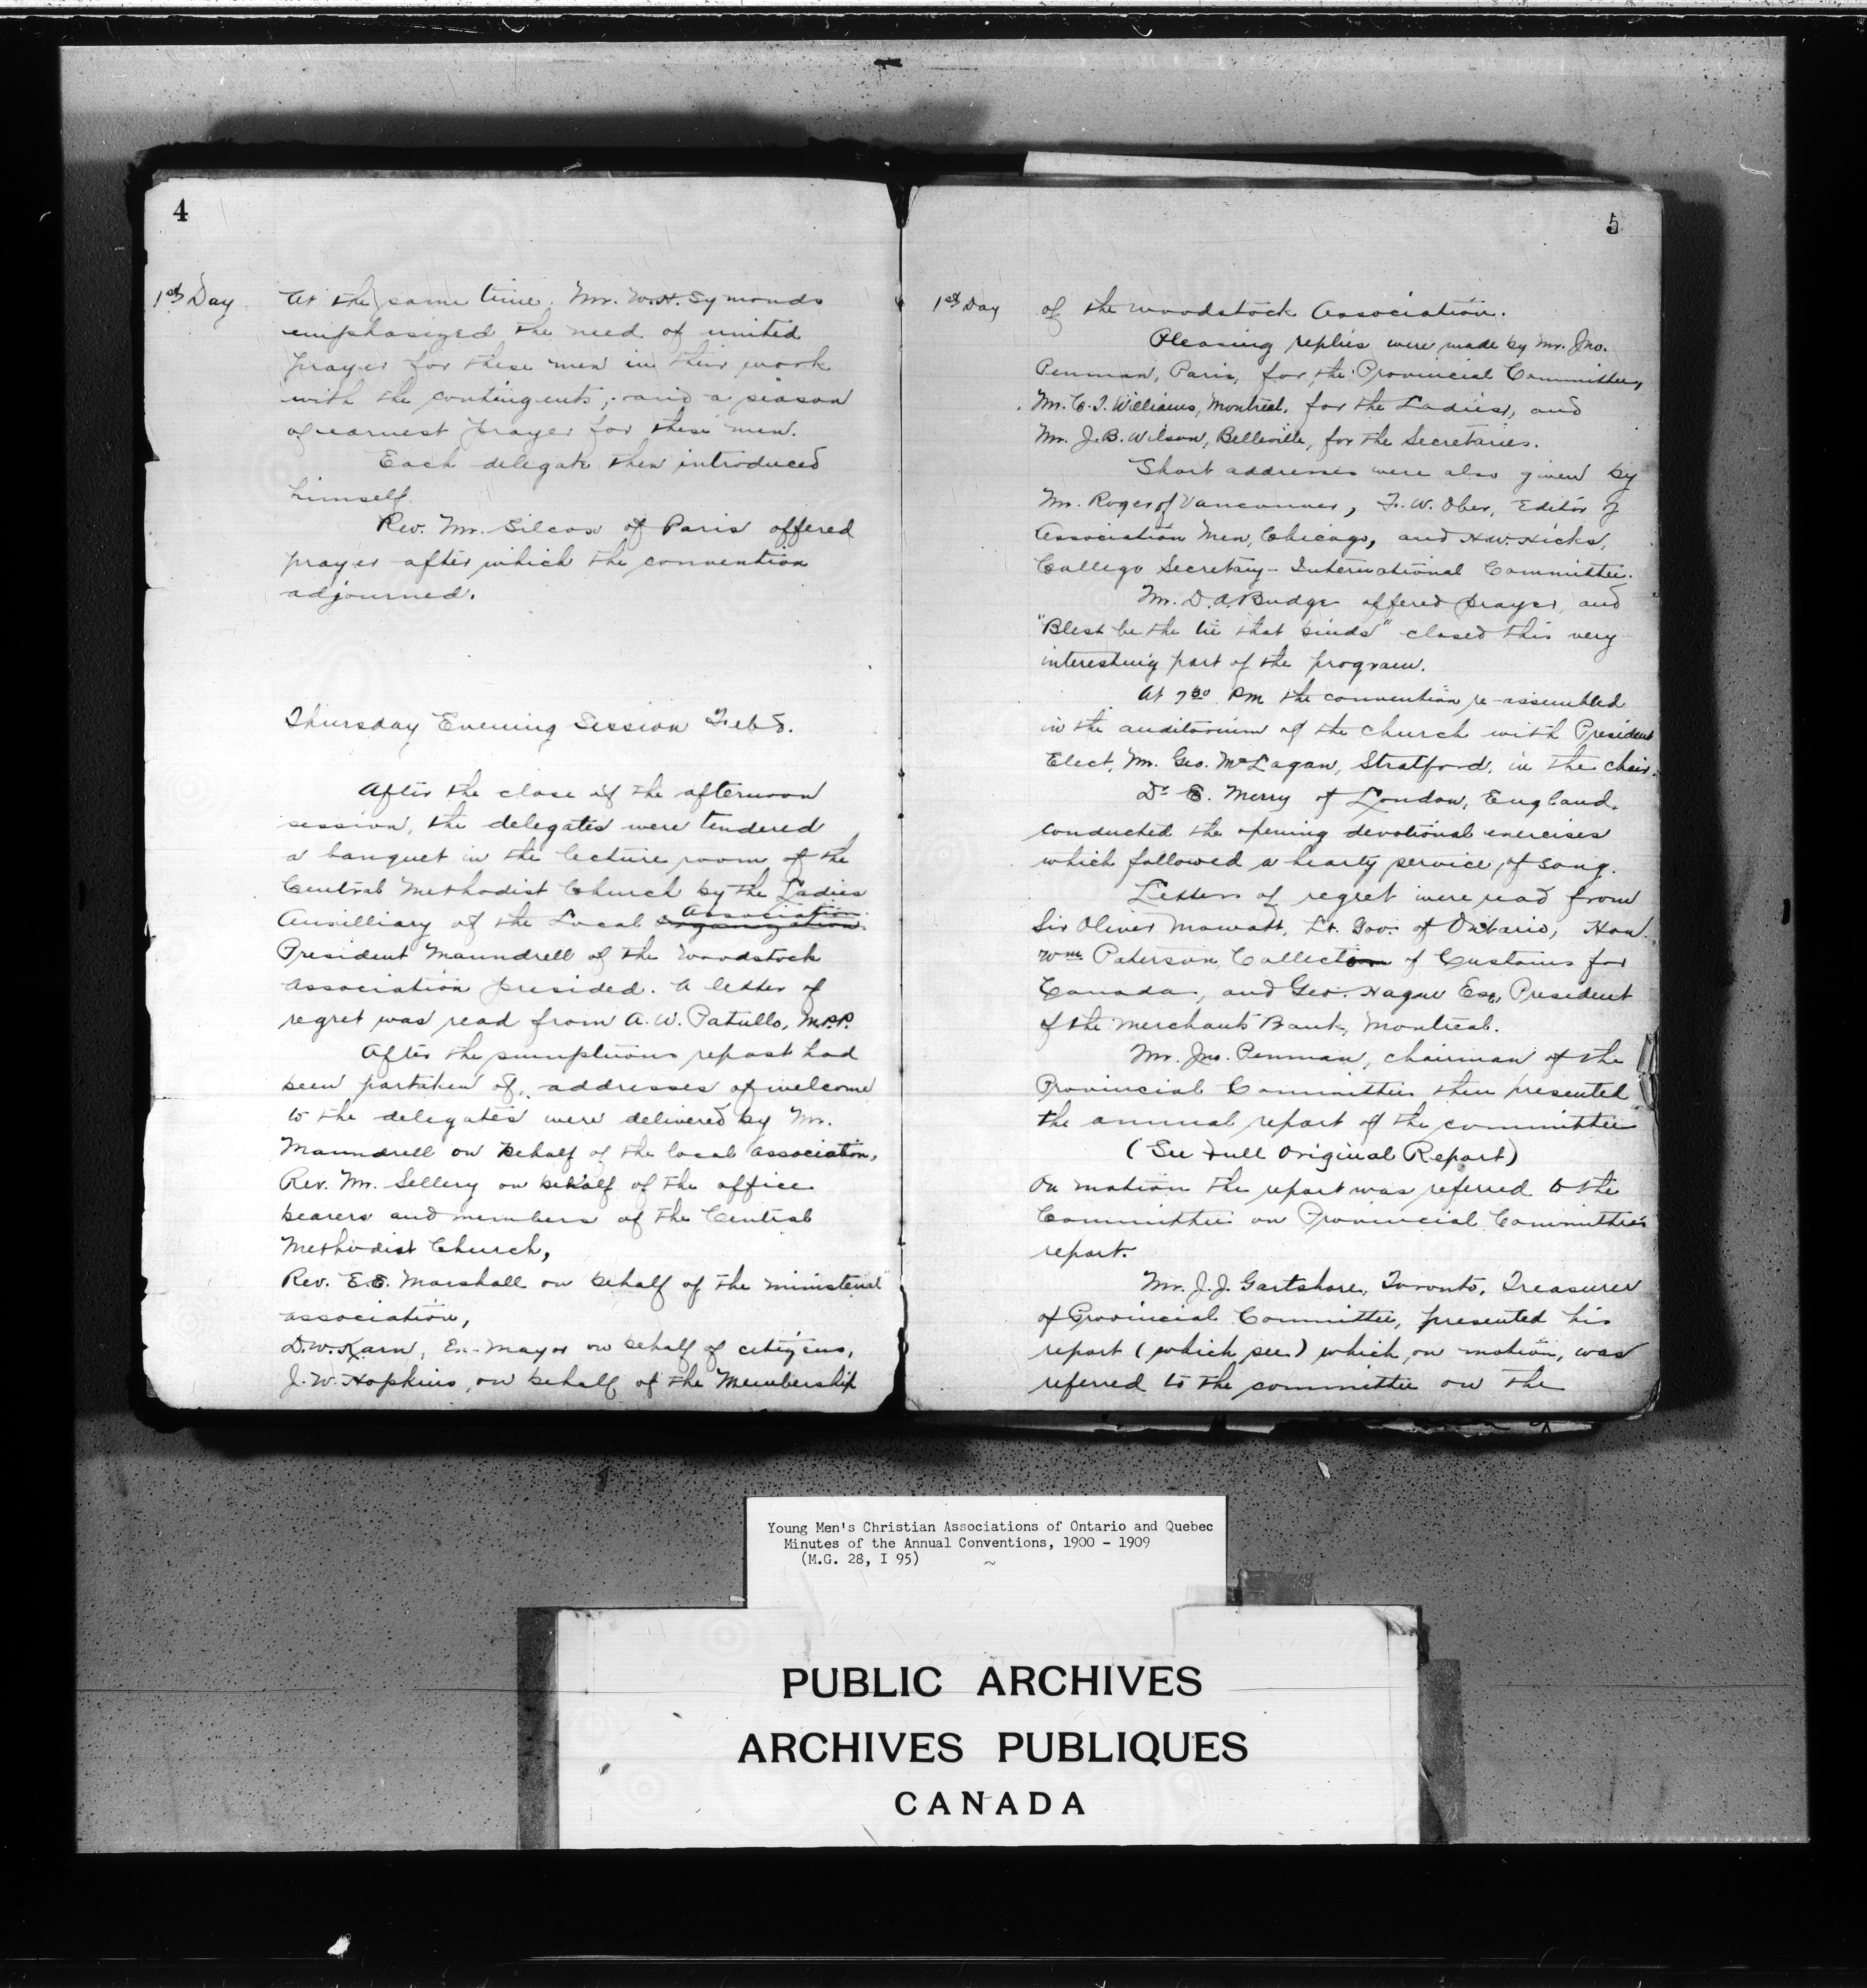 4
1st Day
At the same time. Mr. W.H. Symonds
emphasized the need of united
prayer for these men in their work
with the contingents, and a season
of earnest prayer for these men.
Each delegate then introduced
himself.
Rev. Mr. Silcox of Paris offered
prayer after which the convention
adjourned.
Thursday Evening Session Feb 8.
After the close of the afternoon
session, the delegates were tendered
a banquet in the lecture room of the
Central Methodist Church by the Ladies
Association
Auxilliary of the Local organization.
President Maundrell of the Woodstock
Association presided. A letter of
regret was read from A. W. Patullo, M.P.P.
After the sumptuous repast had
been partaken of, addresses of welcome
to the delegates were delivered by Mr.
Maundrell on behalf of the local association,
Rev. Mr. Sellery on behalf of the office
bearers and members of the Central
Methodist Church,
Rev. E.E. Marshall on behalf of the ministerial
association,
D.W. Karn, Ex-Mayor on behalf of citizens,
J. W. Hopkins, on behalf of the Membership
5
1st Day
of the Woodstock Association.
Pleasing replies were made by Mr. Jno.
Penman, Paris, for the Provincial Committee,
Mr. C. T. Williams, Montreal, for the Ladies, and
Mr. J. B. Wilson, Belleville, for the Secretaries.
Short addresses were also given by
Mr. Roger of Vancouver, F. W. Ober, Editor of
Association Men, Chicago, and H.W. Hicks,
College Secretary - International Committee.
Mr. D. A. Budge offered prayer, and
"Blest be the tie that binds" closed this very
interesting part of the program.
At 7 30 P.M. the convention re-assembled
in the auditorium of the church with President
Elect, Mr. Geo. McLagan, Stratford, in the chair.
Dr E. Merry of London, England,
conducted the opening devotional exercises
which followed a hearty service of song.
Letters of regret were read from
Sir Oliver Mowatt, Lt. Gov. of Ontario, Hon.
Wm Paterson, Collector of Customs for
Canada, and Geo. Hague Esq, President
of the Merchants Bank, Montreal.
Mr. Jno. Penman, chairman of the
Provincial Committee then presented
the annual report of the committee
(See Full Original Report)
On motion the report was referred to the
Committee on Provincial Committee's
report.
Mr. J. J. Gartshore, Toronto, Treasurer
of Provincial Committee, presented his
report (which see) which, on motion, was
referred to the committee on the
Young Men's Christian Associations of Ontario and Quebec
Minutes of the Annual Conventions, 1900 - 1909
(M.G. 28, I 95)
PUBLIC ARCHIVES
ARCHIVES PUBLIQUES
CANADA